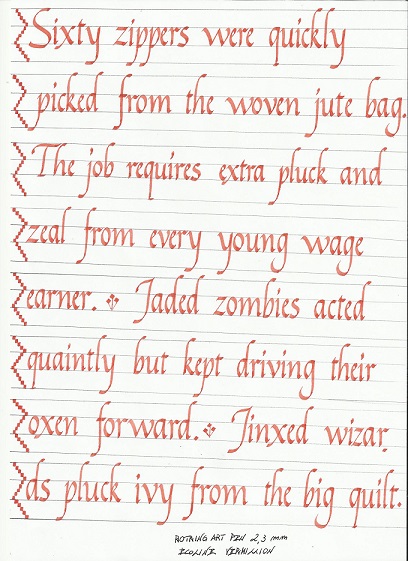 Sixty zippers were quickly
picked from the woven jute bag.
The job requires extra pluck and
zeal from every young wage
earner. Jaded zombies acted
quaintly but kept driving their
oxen forward. Jinxed wizar
ds pluck ivy from the big quilt.
ROTRING ART PEN 2,3 mm
ECOLINE VERMILLION